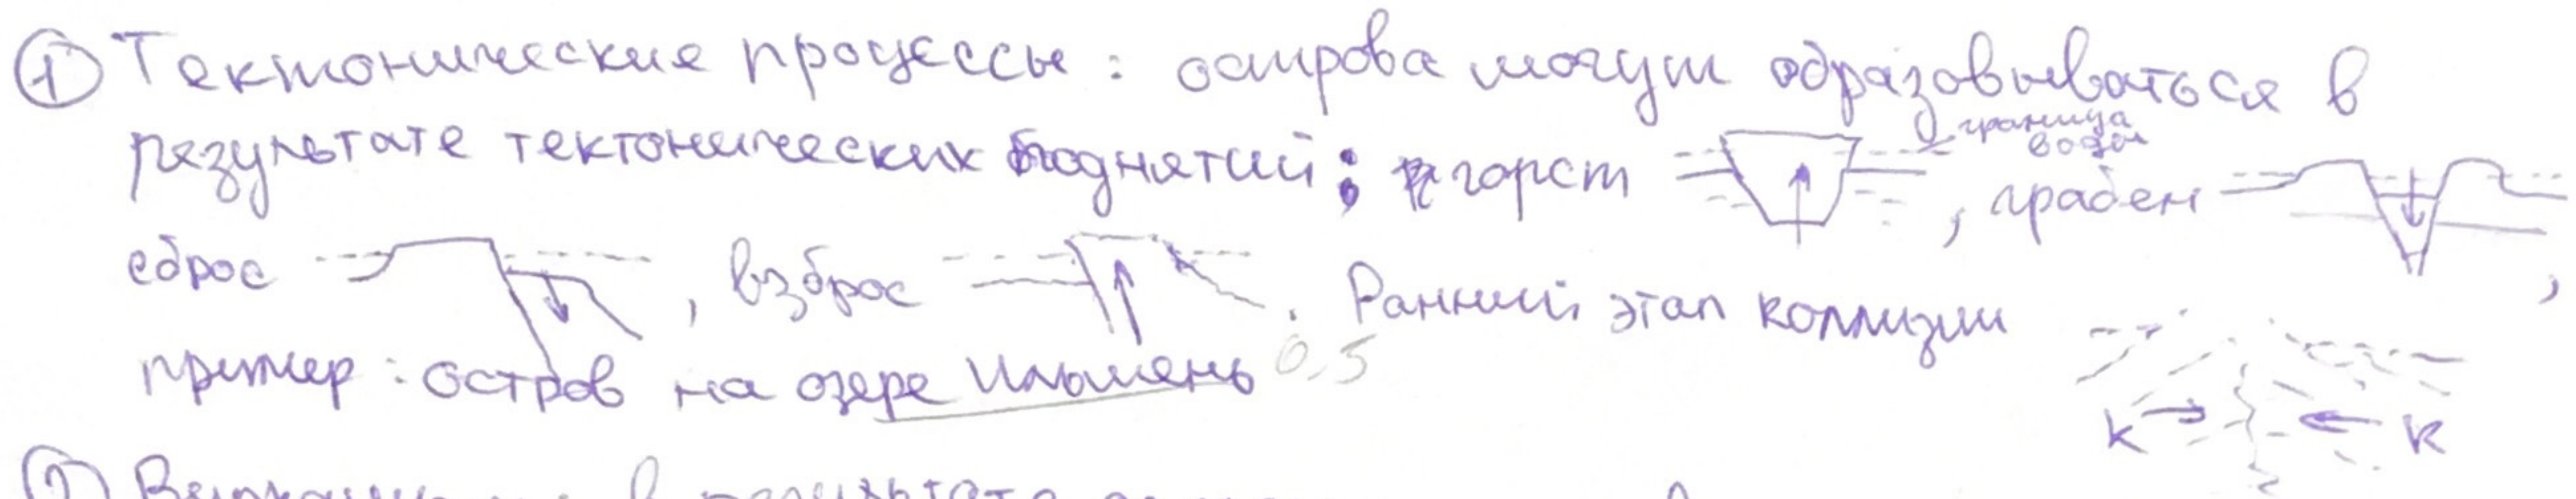 ① Тектонические процессы: острова могут образовываться в
результате тектонических поднятий; горст граница воды, грабен,
сброс, взброс. Ранний этап коллизии
К К
пример: остров на озере Ильмень 0,5